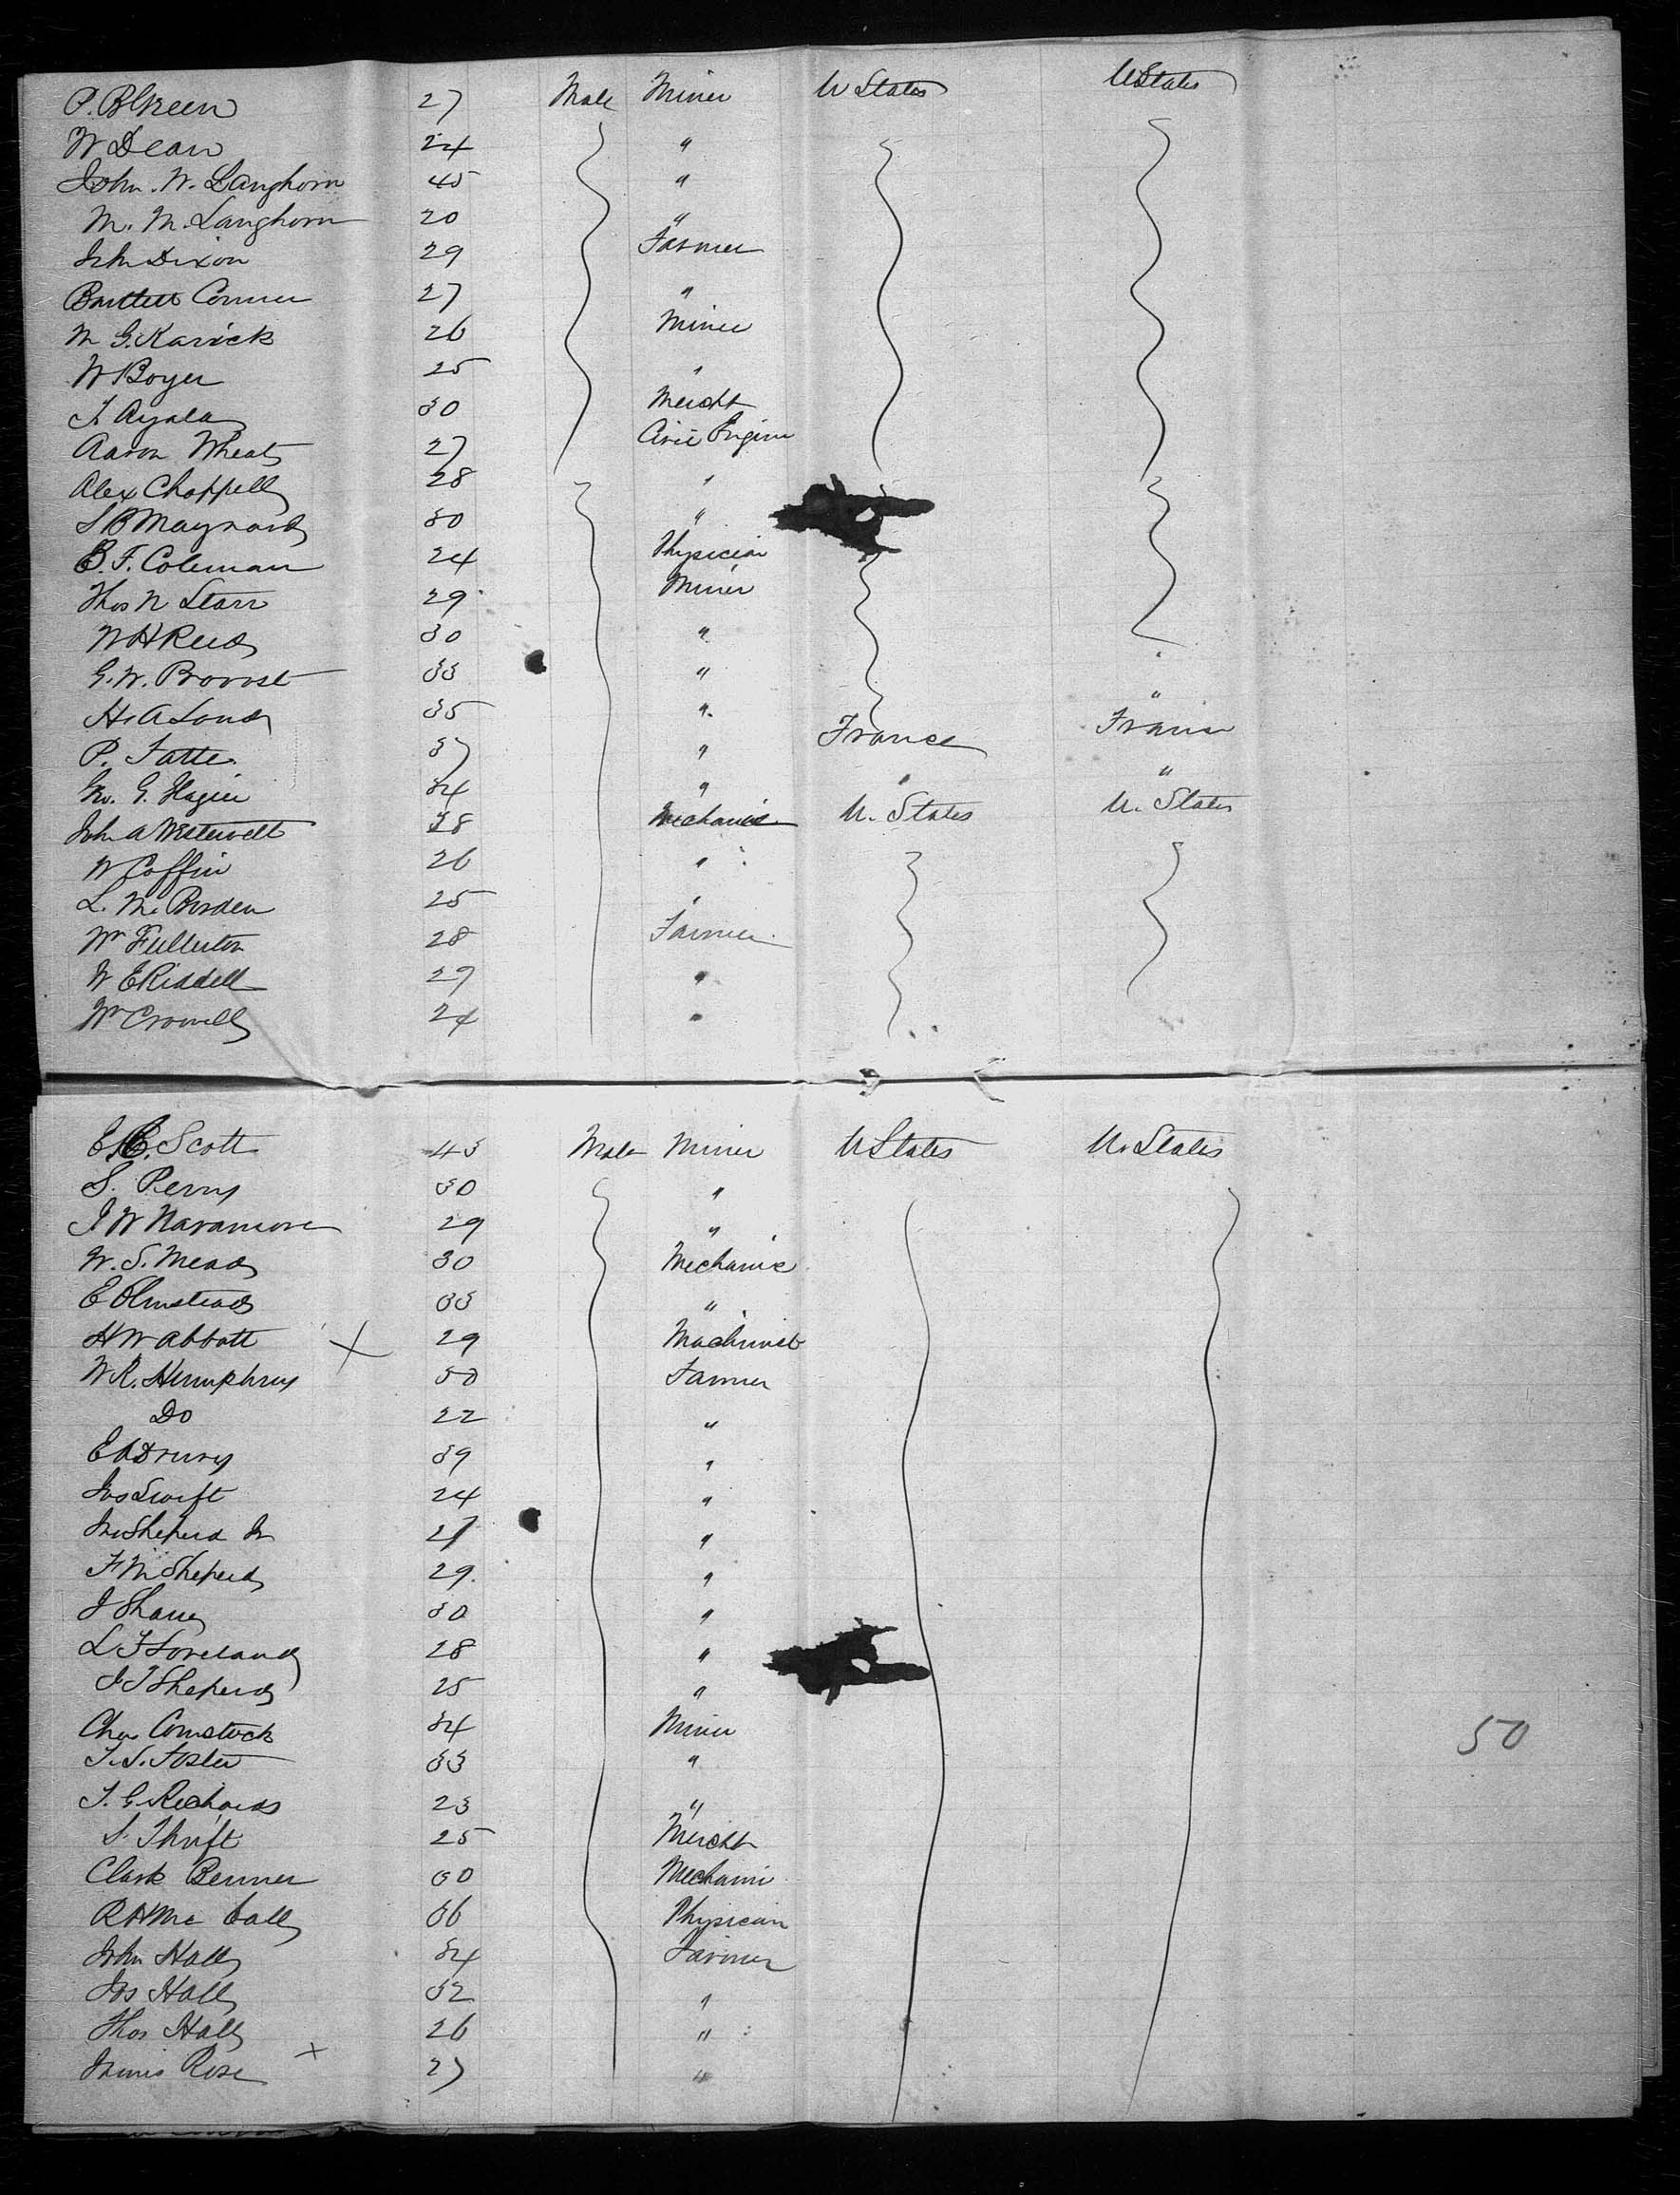 P. B Green 27 Male Miner U States U States
W Dean 24 "
John. W. Langhorn 45 "
M. M. Langhorn 20 "
John Dixon 29 Farmer
Bartlett Conner 27 "
M G. Karrick 26 Miner
W Boyer 25 "
T. Ayala 30 Mercht
Aaron Wheat 27 Civil Engine
Alex Chappell 28 "
S B Maynard 30 "
B. F. Coleman 24 Physician
Thos N Starr 29 Miner
W H Reed 30 "
G. W. Provost 33 "
H. A Loud 35 " "
P. Fatte. 37 " France France
Geo. G. Hagin 34 " " "
John A Westervelt 38 Mechanic U. States U. States
W Coffin 26 "
L. M. Borden 25 "
Wm Fullerton 28 Farmer
W E Riddell 29 "
Wm Crowell 24 "
E. Scott 43 Male Miner U States U. States
S. Perry 30 "
J W Naramore 29 "
W. S. Mead 30 Mechanic
E Olmstead 33 "
H W Abbott X 29 Machinist
W R. Humphrey 50 Farmer
Do 22 "
E A Drury 39 "
Jos Swift 24 "
Shepherd Jr 27 "
F M Sheperd 29. "
J Sharey 30 "
L F Loveland 28 "
J T Sheperd 25 "
Chas Comstock 34 Miner
T. S. Foster 33 " 50
T. G. Richards 23 "
S. Thrift 25 Mercht
Clark Benner 30 Mechanic
R H Mc Call 36 Physician
John Hall 34 Farmer
Jos Hall 32 "
Thos Hall 26 "
James Rose X 27 "